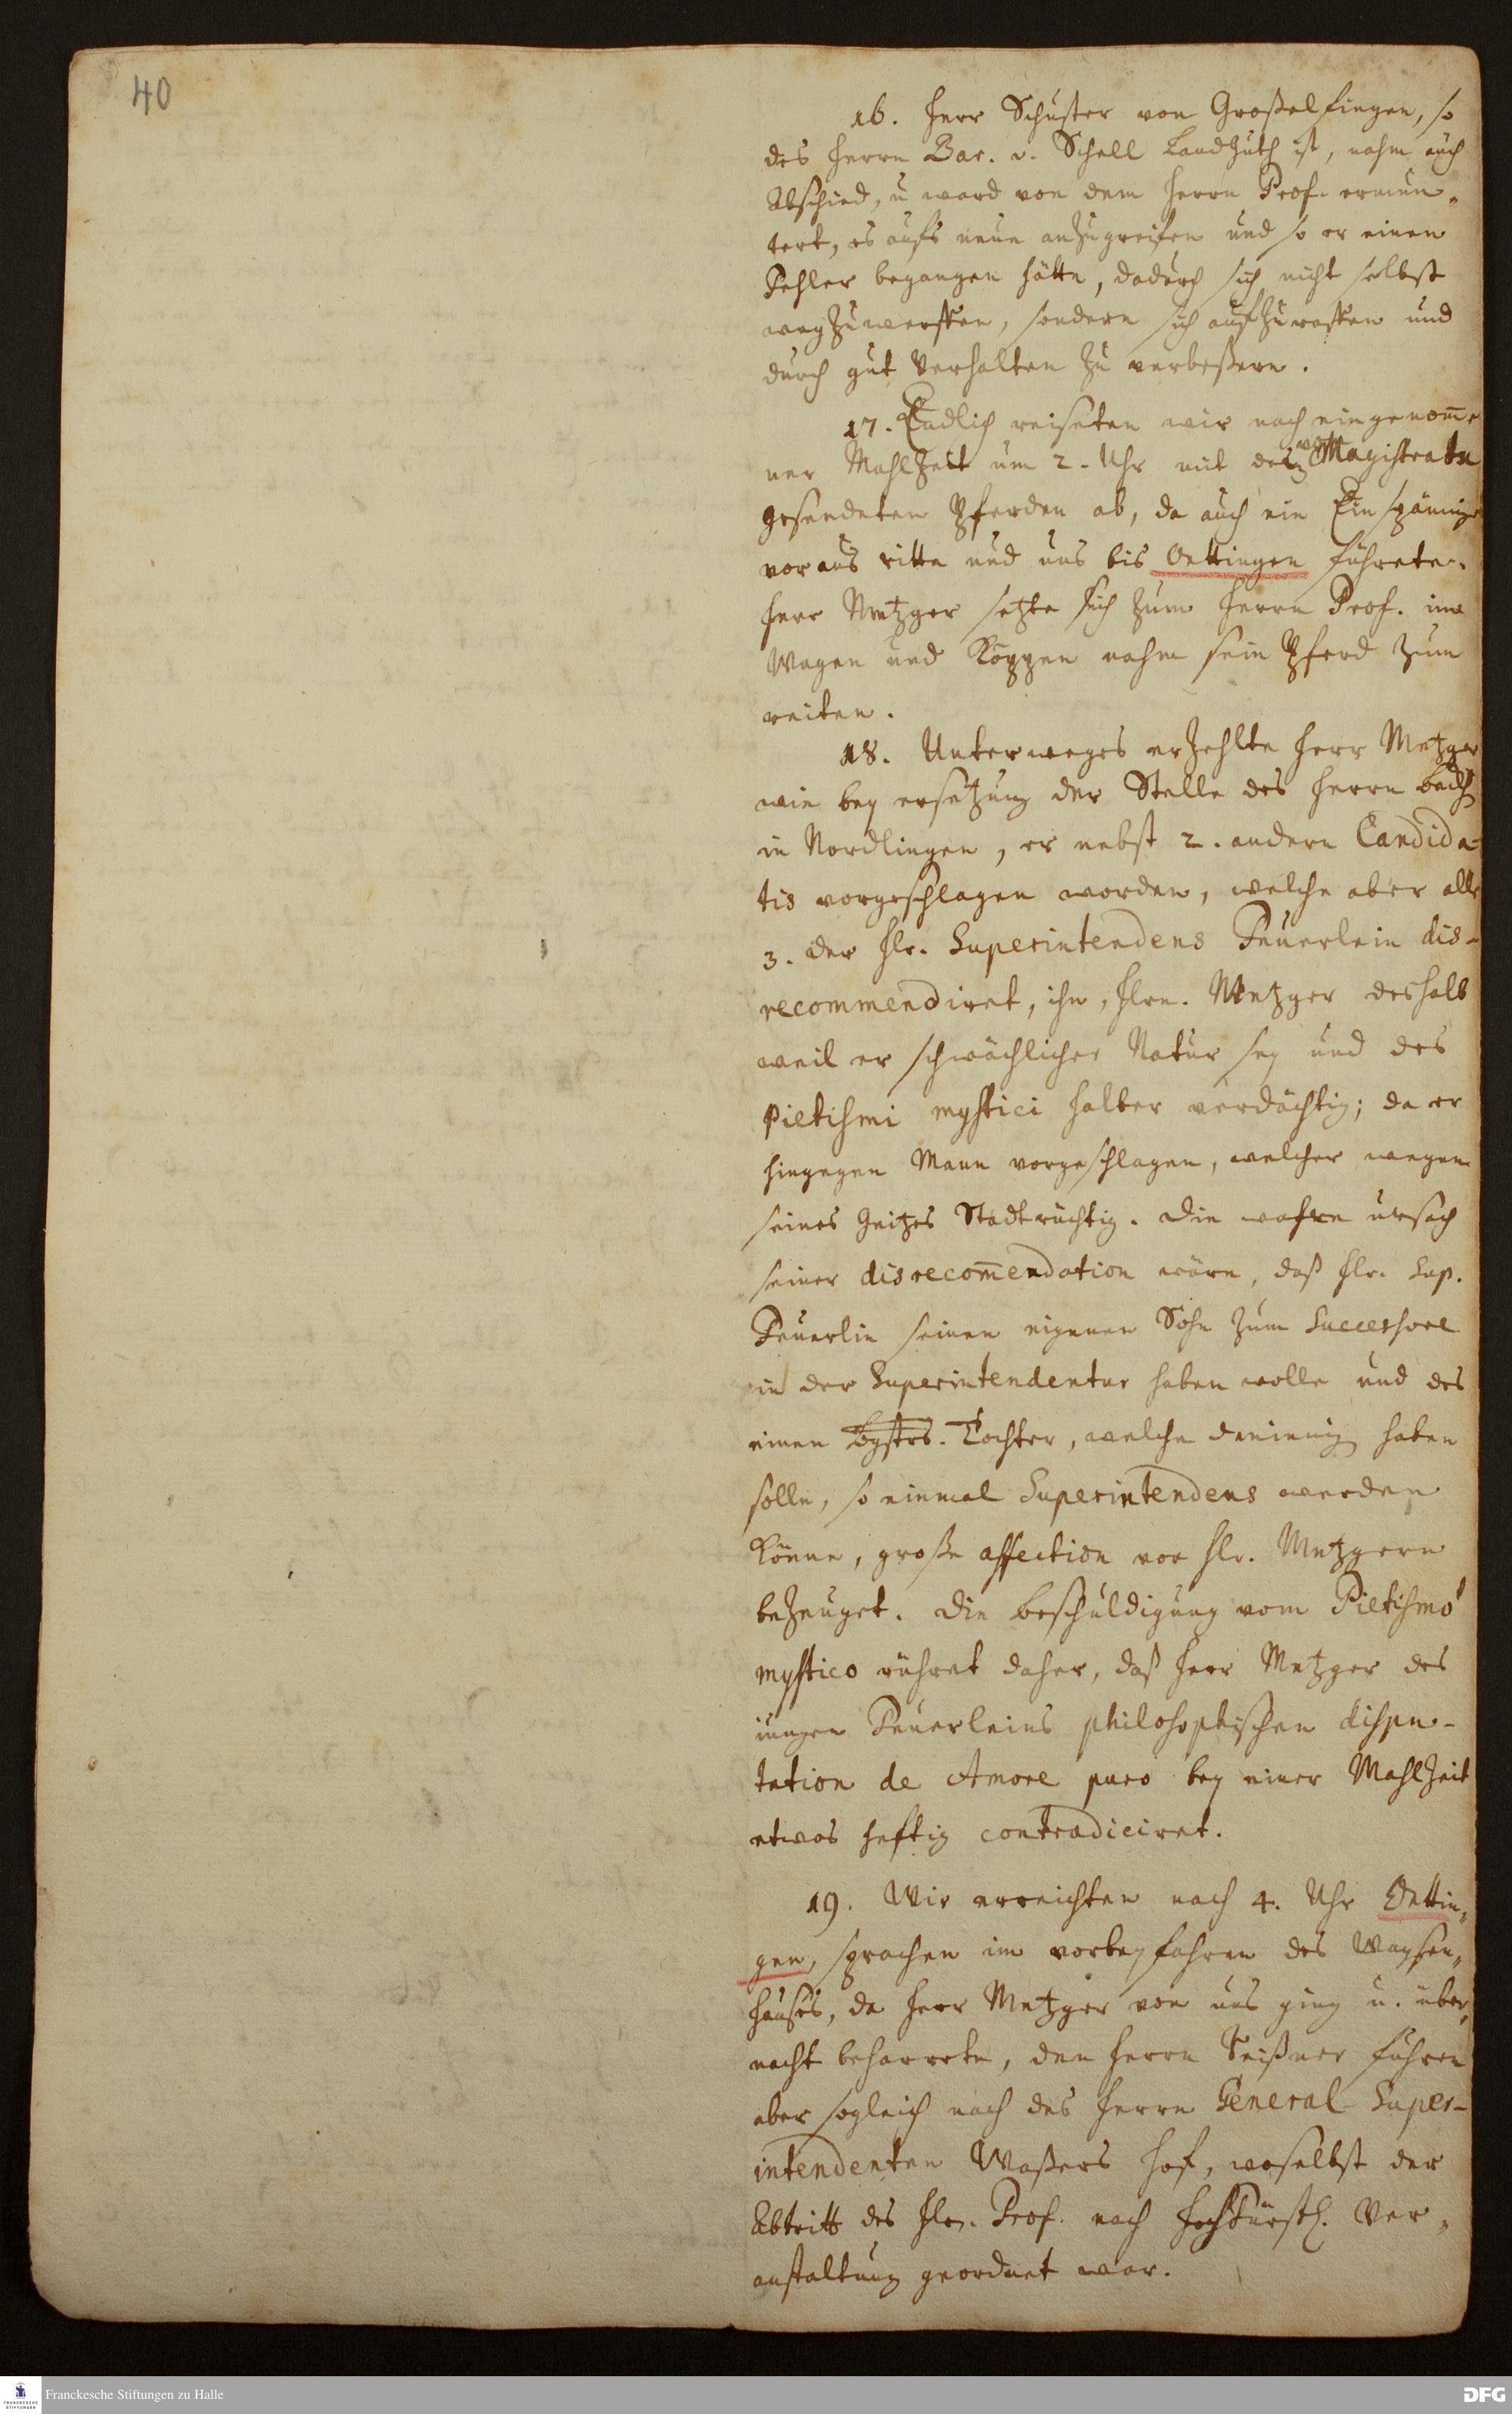 40
16. Herr Schuster von Großelfingen, so
des Herrn Bar. v. Schell Landhuth ist, nahm auch
Abschied, u ward von dem Herrn Prof. ermun-
tert, es aufs neue anzugreifen und so er einen
Fehler begangen hätte, dadurch sich nicht selbst
wegzuwerffen, sondern sich aufzuraffen und
durch gut Verhalten zu verbeßern.
17. Endlich reiseten wir nach eingenom̅e
ner Mahlzeit um 2. Uhr mit des Magistratu
gesendeten Pferden ab, da auch ein Einspänniger
voraus ritte und uns bis Oettingen führete.
Herr Metzger setzte sich zum Herrn Prof. im
Wagen und Köppen nahm sein Pferd zum
reiten.
18. Unterweges erzehlte Herr Metzger
wie bey ersetzung der Stelle des Herrn
in Nordlingen, er nebst 2. andern Candida-
tis vorgeschlagen worden, welche aber alle
3. der Hr. Superintendens Feuerlein dis-
recommendiret, ihn, Hrn. Metzger deshalb
weil er schwächlicher Natur sey und des
Pietismi mystici halber verdächtig; da er
hingegen Mann vorgeschlagen, welcher wegen
seines Geitzes Stadtrüchtig. Die wahre ursach
seiner disrecom̅endation wäre, daß Hr. Sup.
Feuerlin seinen eigenen Sohn zum Successore
in der Superintendentur haben wolle und des
einen Tochter, welche denienig haben
solle, so einmal Superintendens werden
könne, große affection vor Hr. Metzgern
bezeuget. Die beschuldigung vom Pietismo
mystico rühret daher, daß Herr Metzger des
iungen Feuerleins philosophischen dispu-
tation de Amore puro bey einer Mahlzeit
etwas heftig contradiciret.
19. Wir erreichten nach 4. Uhr Oettin-
gen, sprachen im vorbeyfahren des Waysen-
hauses, da Herr Metzger von uns ging u. über
nacht beharrete, den Herrn Seißner führen
aber sogleich nach des Herrn General-Super-
intendenten Waßers Hof, woselbst der
Abtritt des Hrn. Prof. nach Hochfürstl. Ver-
anstaltung geordnet war.
Franckesche Stiftungen zu Halle
DFG